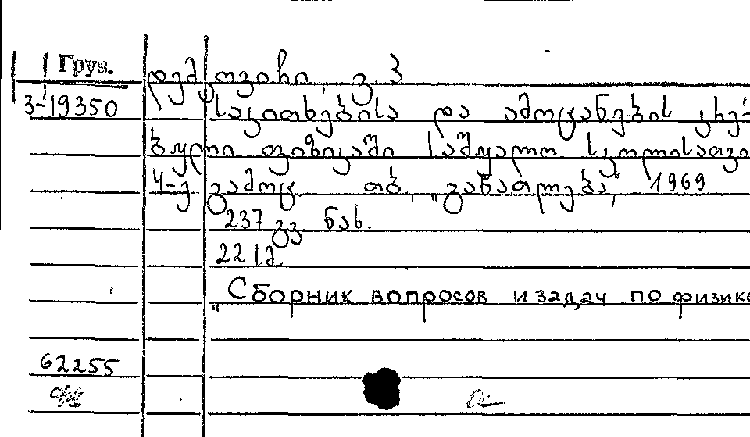 Груз.
დემკოვიჩი, ვ. პ.
3-19350
საკითხებისა და ამოცანების კრე-
ბული ფიზიკაში საშუალო სკოლისათვი
4-ე გამოც. თბ., „განათლება", 1969
237 გვ. ნახ.
22 სმ
„Сборник вопросов и задач по физике
62255